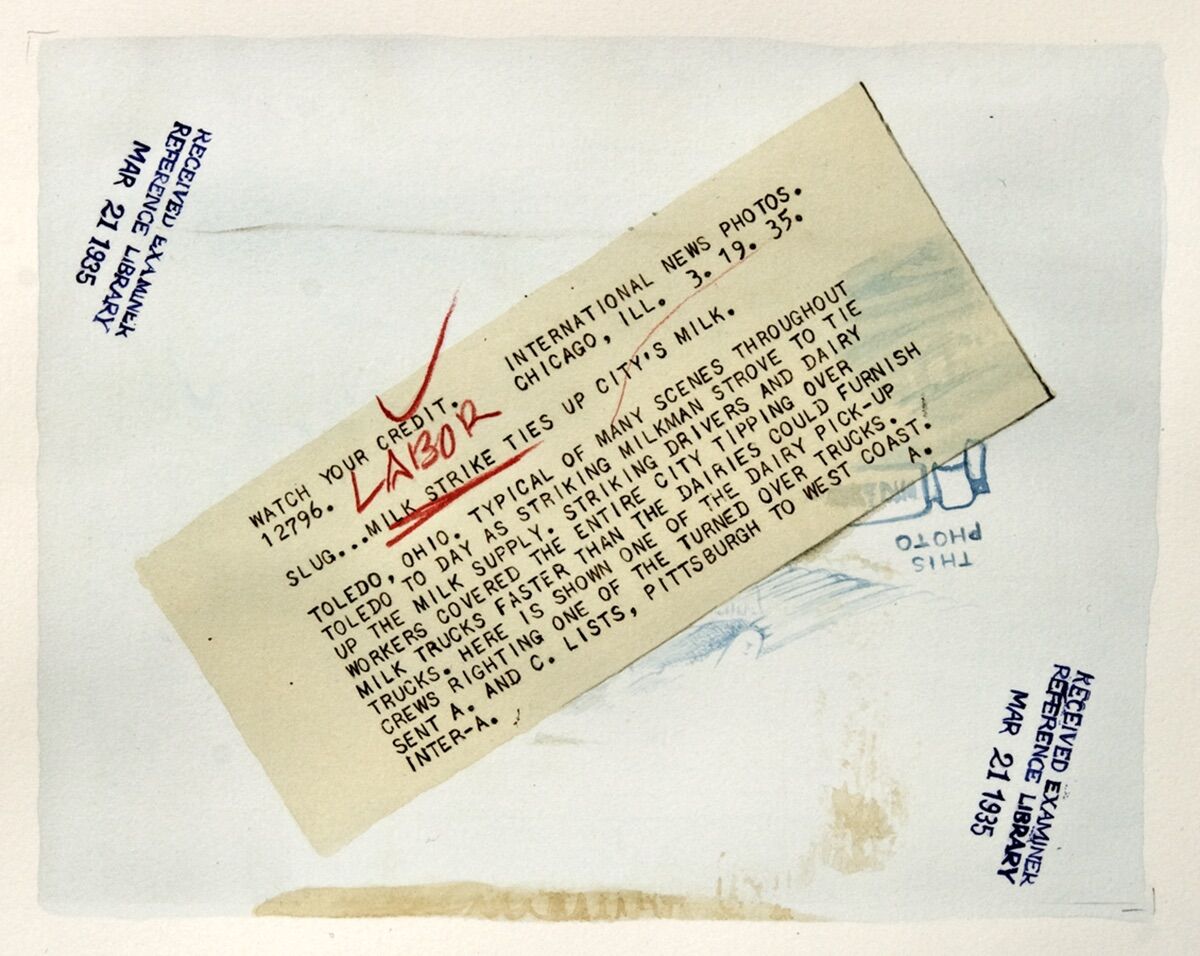 RECEIVED EXAMINER
REFERENCE LIBRARY
MAR 21 1935
WATCH YOUR CREDIT. INTERNATIONAL NEWS PHOTOS.
12796. CHICAGO, ILL. 3. 19. 35.
LABOR
SLUG...MILK STRIKE TIES UP CITY'S MILK.
TOLEDO, OHIO. TYPICAL OF MANY SCENES THROUGHOUT
TOLEDO TO DAY AS STRIKING MILKMAN STROVE TO TIE
UP THE MILK SUPPLY. STRIKING DRIVERS AND DAIRY
WORKERS COVERED THE ENTIRE CITY TIPPING OVER
MILK TRUCKS FASTER THAN THE DAIRIES COULD FURNISH
TRUCKS. HERE IS SHOWN ONE OF THE DAIRY PICK-UP
CREWS RIGHTING ONE OF THE TURNED OVER TRUCKS.
SENT A. AND C. LISTS, PITTSBURGH TO WEST COAST.
INTER-A. A.
THIS
PHOTO
RECEIVED EXAMINER
REFERENCE LIBRARY
MAR 21 1935